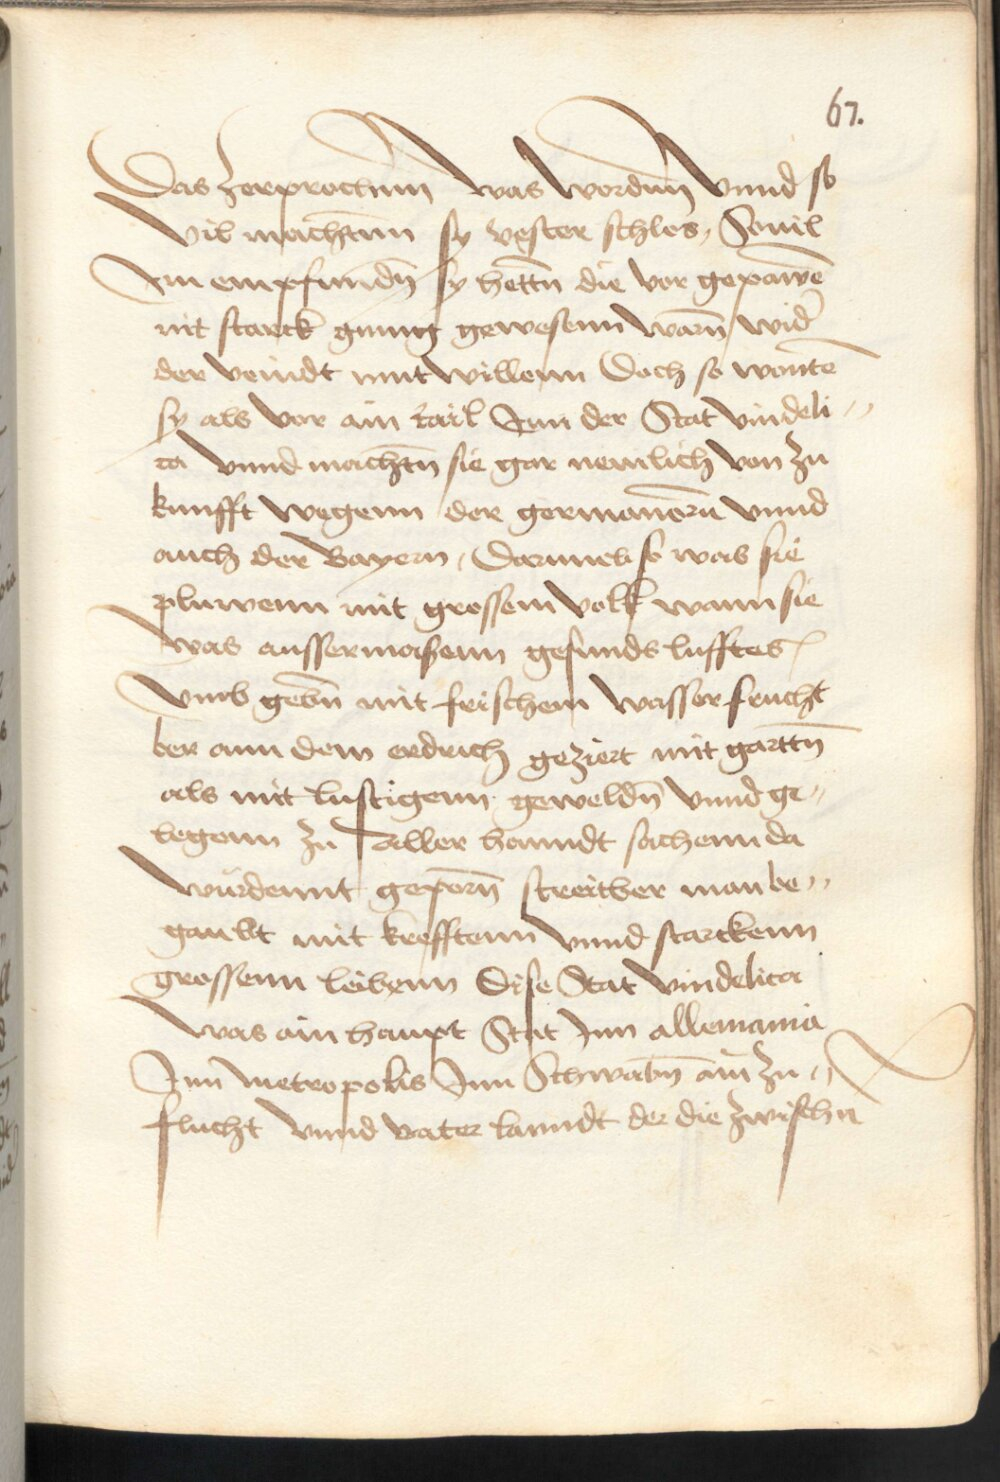 67.
Das zerprochenn was wordenn vnnd so
vil machtenn sy vester schlos, Souil
Jm empfundn̄ sy hettn̄ die vor gepawē
nit starck gnug gewesenn warn̄ wid̄
der veindt mutwillenn Doch so wontē
sy als vor ain tail Jnn der Stat vindeli〃
ca vnnd machtn̄ sie gar newlich von zu
kunfft wegenn der germanern̄ vnnd
auch der Bayern, Darnneb so was sie
pluwenn mit grossem volk wann sie
was aussermassenn gesunds lufftes
vmb gebn̄ mit frischem wasser frucht
ber ann dem erdrich geziert mit gartn̄
als mit lustigenn geweldn̄ vnnd ge〃
legenn zu aller hanndt sachenn da
wurdennt geporn̄ streitber man be〃
gaubt mit krefftenn vnnd starckenn
grossenn leibenn Dise Stat vindelica
was ain haupt Stat Jnn allemania
Jnn metropolis Jnn Schwabn̄ ain zu〃
flucht vnnd vater lanndt der die zwischn